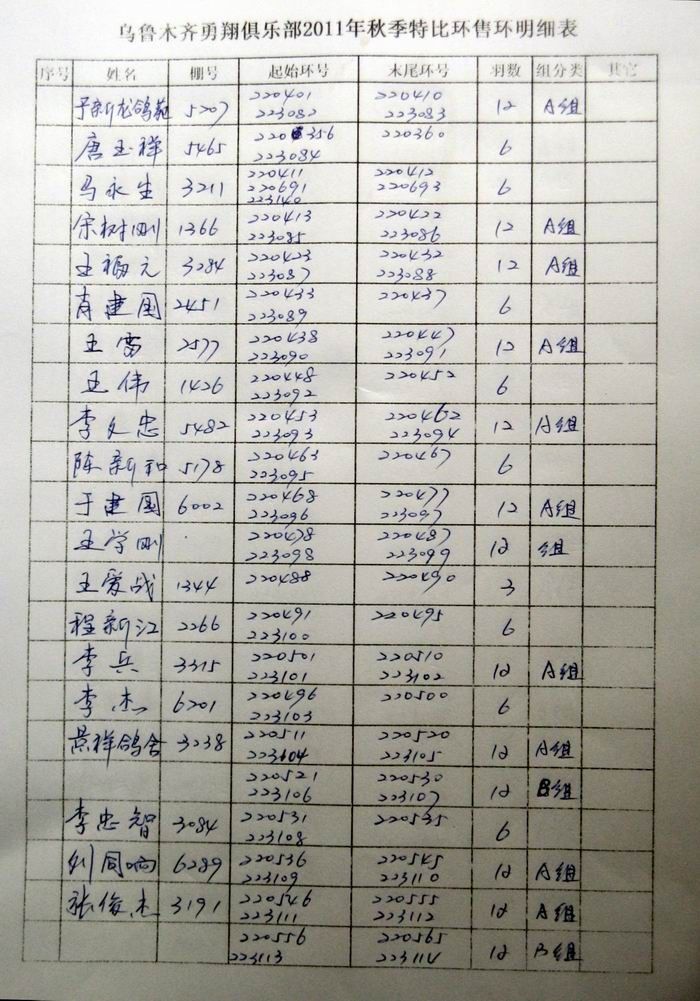 乌鲁木齐勇翔俱乐部2011年秋季特比环售环明细表
序号 姓名 棚号 起始环号 末尾环号 羽数 组分类 其它
220401 220410
于新龙鸽苑 5207 12 A组
223082 223083
唐玉祥 5465 220356 220360 6
223084
220411 220412
马永生 3211 220691 220693 6
223140
宋树刚 1366 220413 220422 12 A组
223085 223086
王福元 3284 220423 220432 12 A组
223087 223088
肖建国 2451 220433 220437 6
223089
王雷 2577 220438 220447 12 A组
223090 223091
王伟 1426 220448 220452 6
223092
李文忠 5482 220453 220462 12 A组
223093 223094
陈新和 5178 220463 220467 6
223095
于建国 6002 220468 220477 12 A组
223096 223097
王学刚 220478 220487 12 组
223098 223099
王爱战 1344 220488 220490 3
程新江 2266 220491 220495 6
223100
李兵 3315 220501 220510 12 A组
223101 223102
李杰 6201 220496 220500 6
223103
景祥鸽舍 3238 220511 220520 12 A组
223104 223105
220521 220530 12 B组
223106 223107
李忠智 3084 220531 220535 6
223108
刘同响 6289 220536 220545 12 A组
223109 223110
张俊杰 3191 220546 220555 12 A组
223111 223112
220556 220565 12 B组
223113 223114